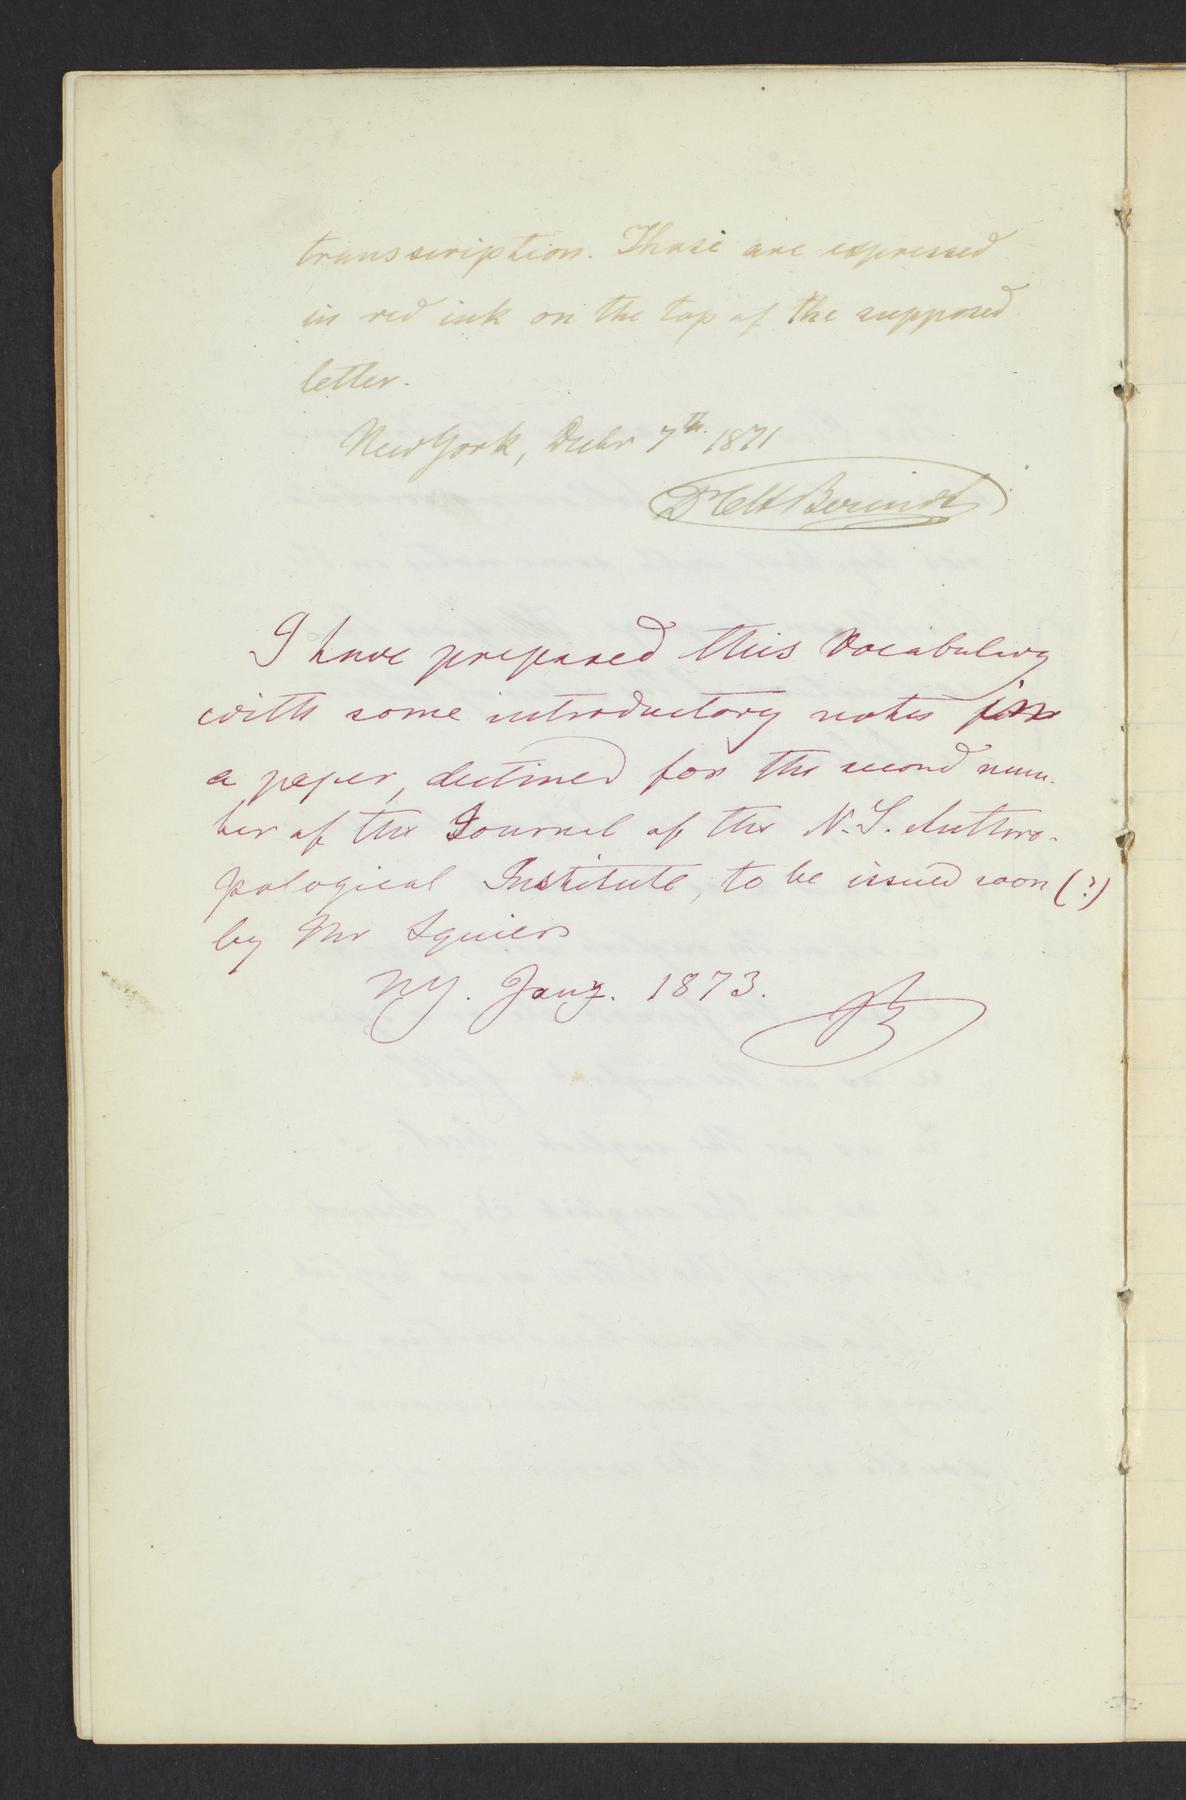 transscription. These are expressed
in red ink on the top of the supposed
letter.
New York, Decbr 7th. 1871
Dr CHBerendt
I have prepared this Vocabulary
with some introductory notes for
a paper, destined for the second num-
ber of the Journal of the N.Y. Anthro-
pological Institute, to be issued soon (?)
by Mr Squier
NY. Jany. 1873.
B